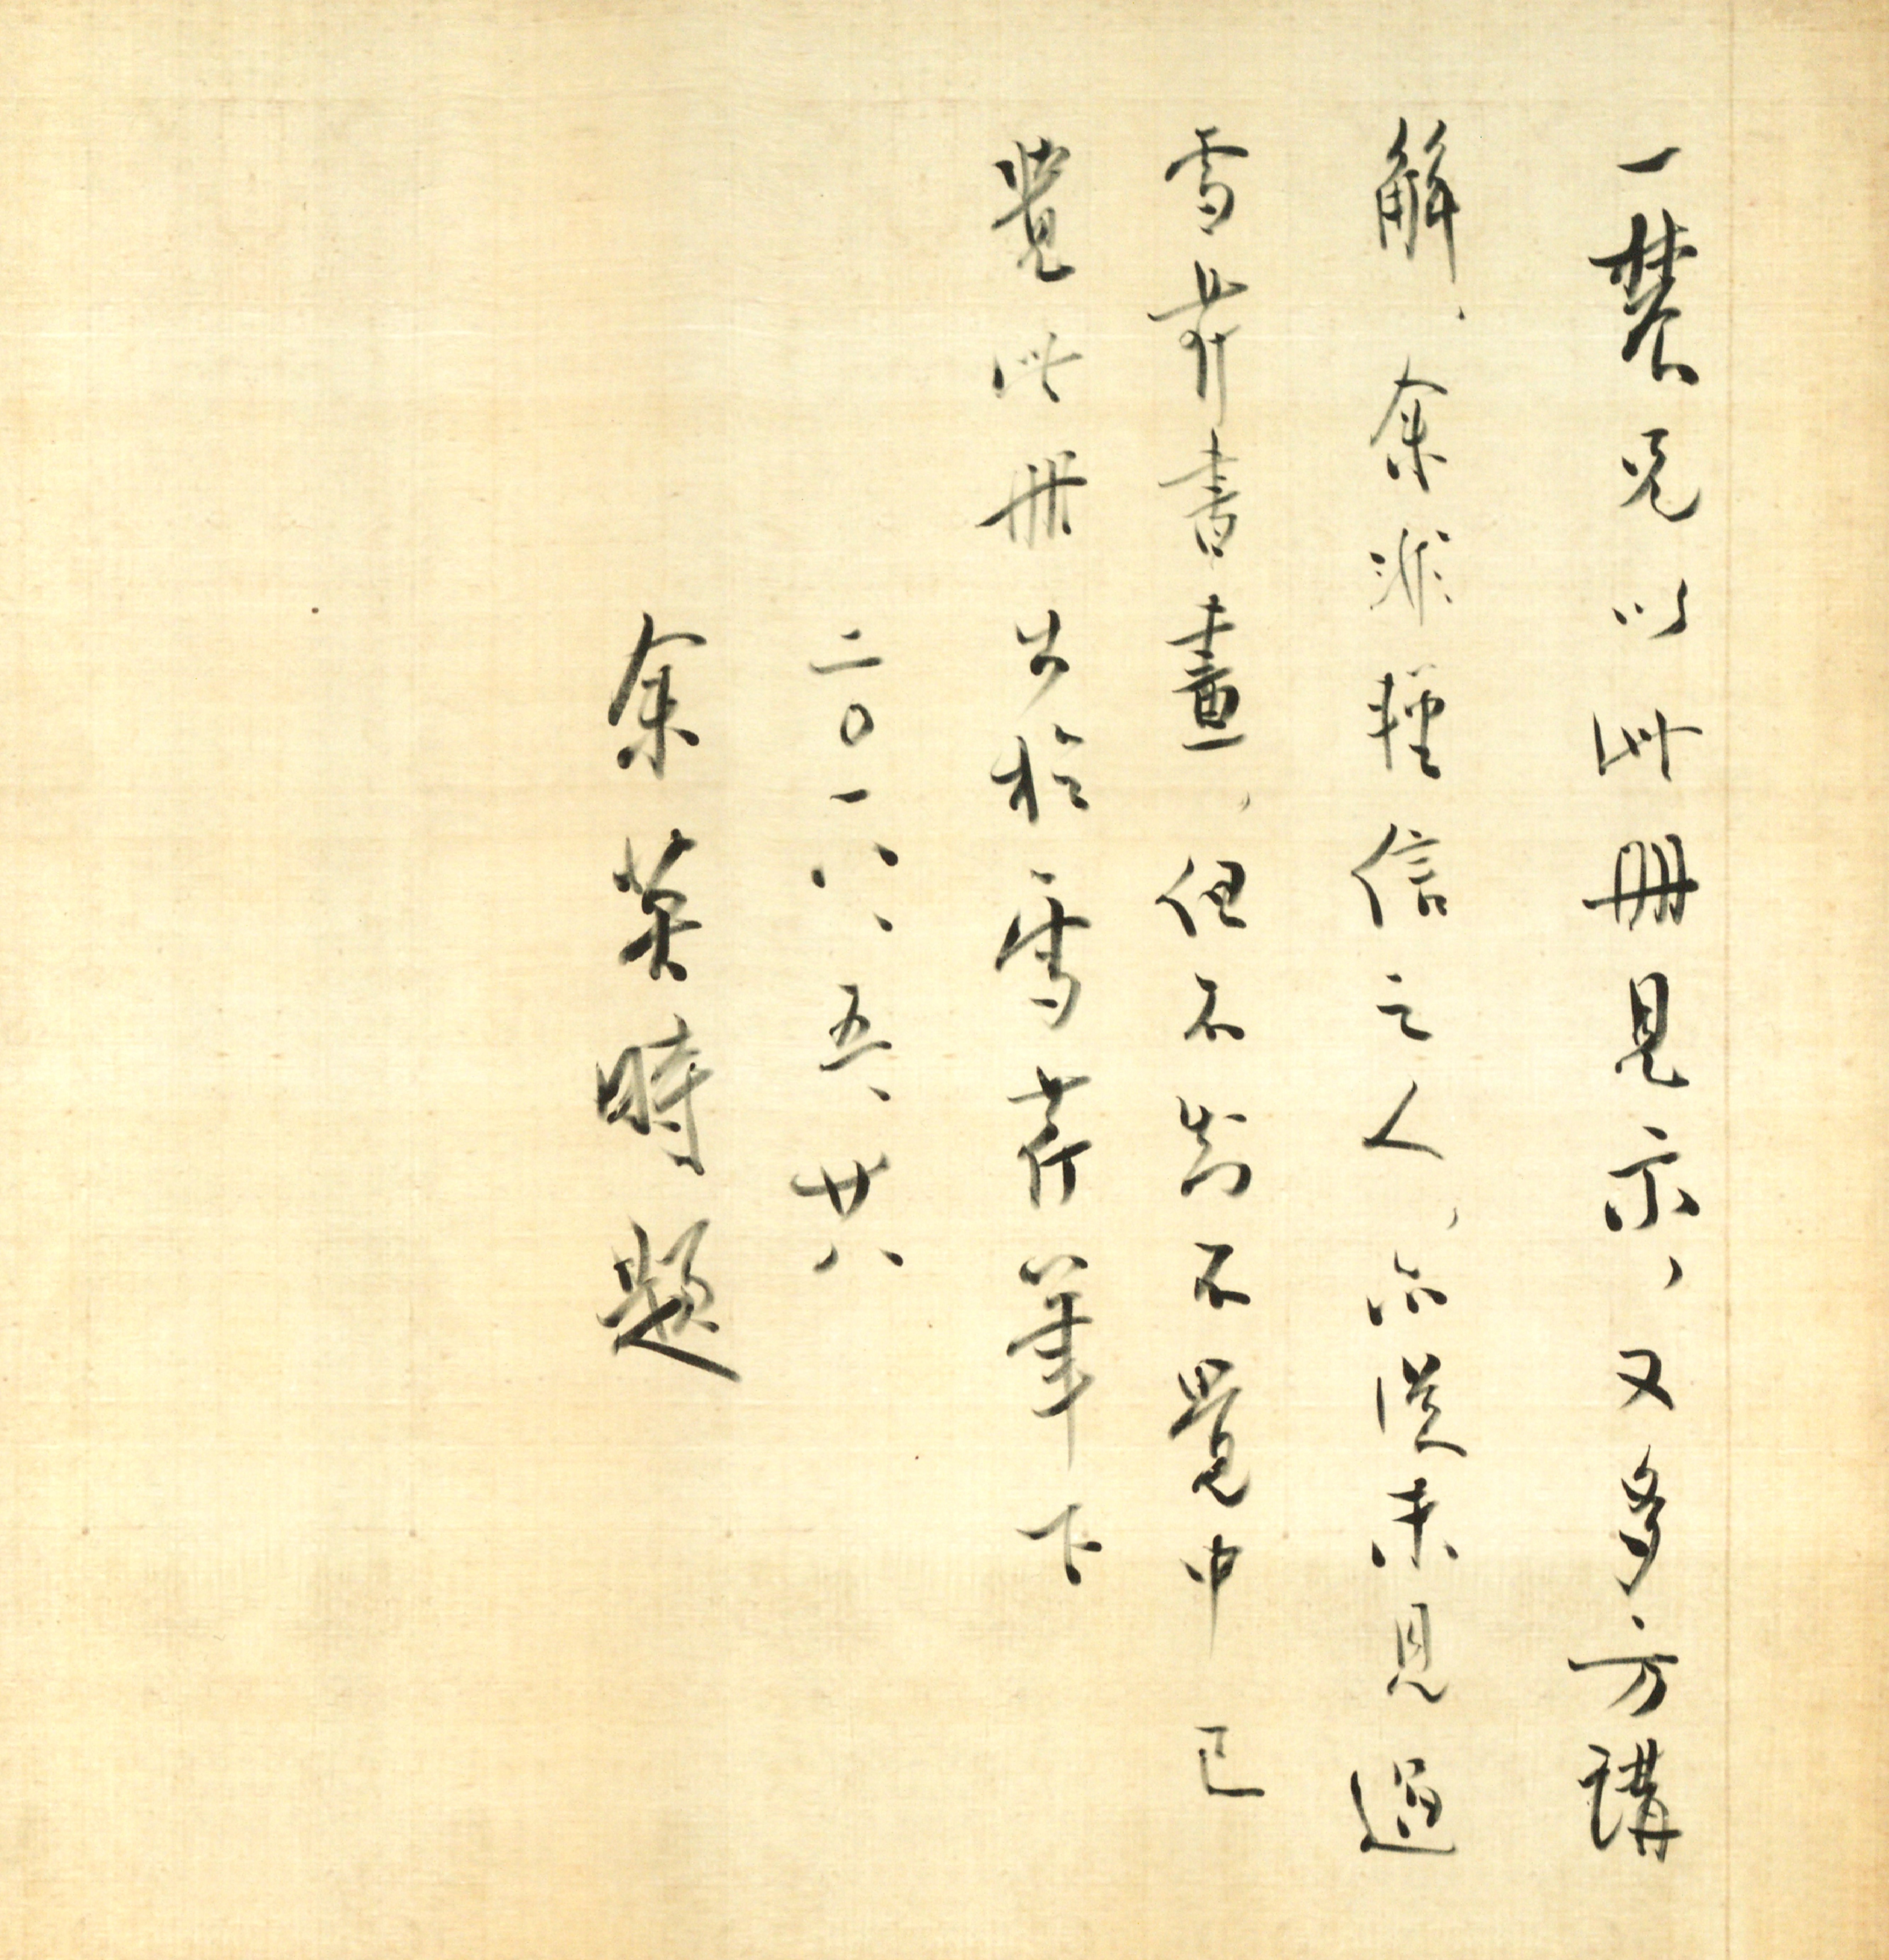 一贊兄以此冊見示，又多方講
解，余非輕信之人，亦從未見過
雪芹書畫，但不知不覺中已
覺此冊出於雪芹筆下
二〇一八、五、廿八
余英時題